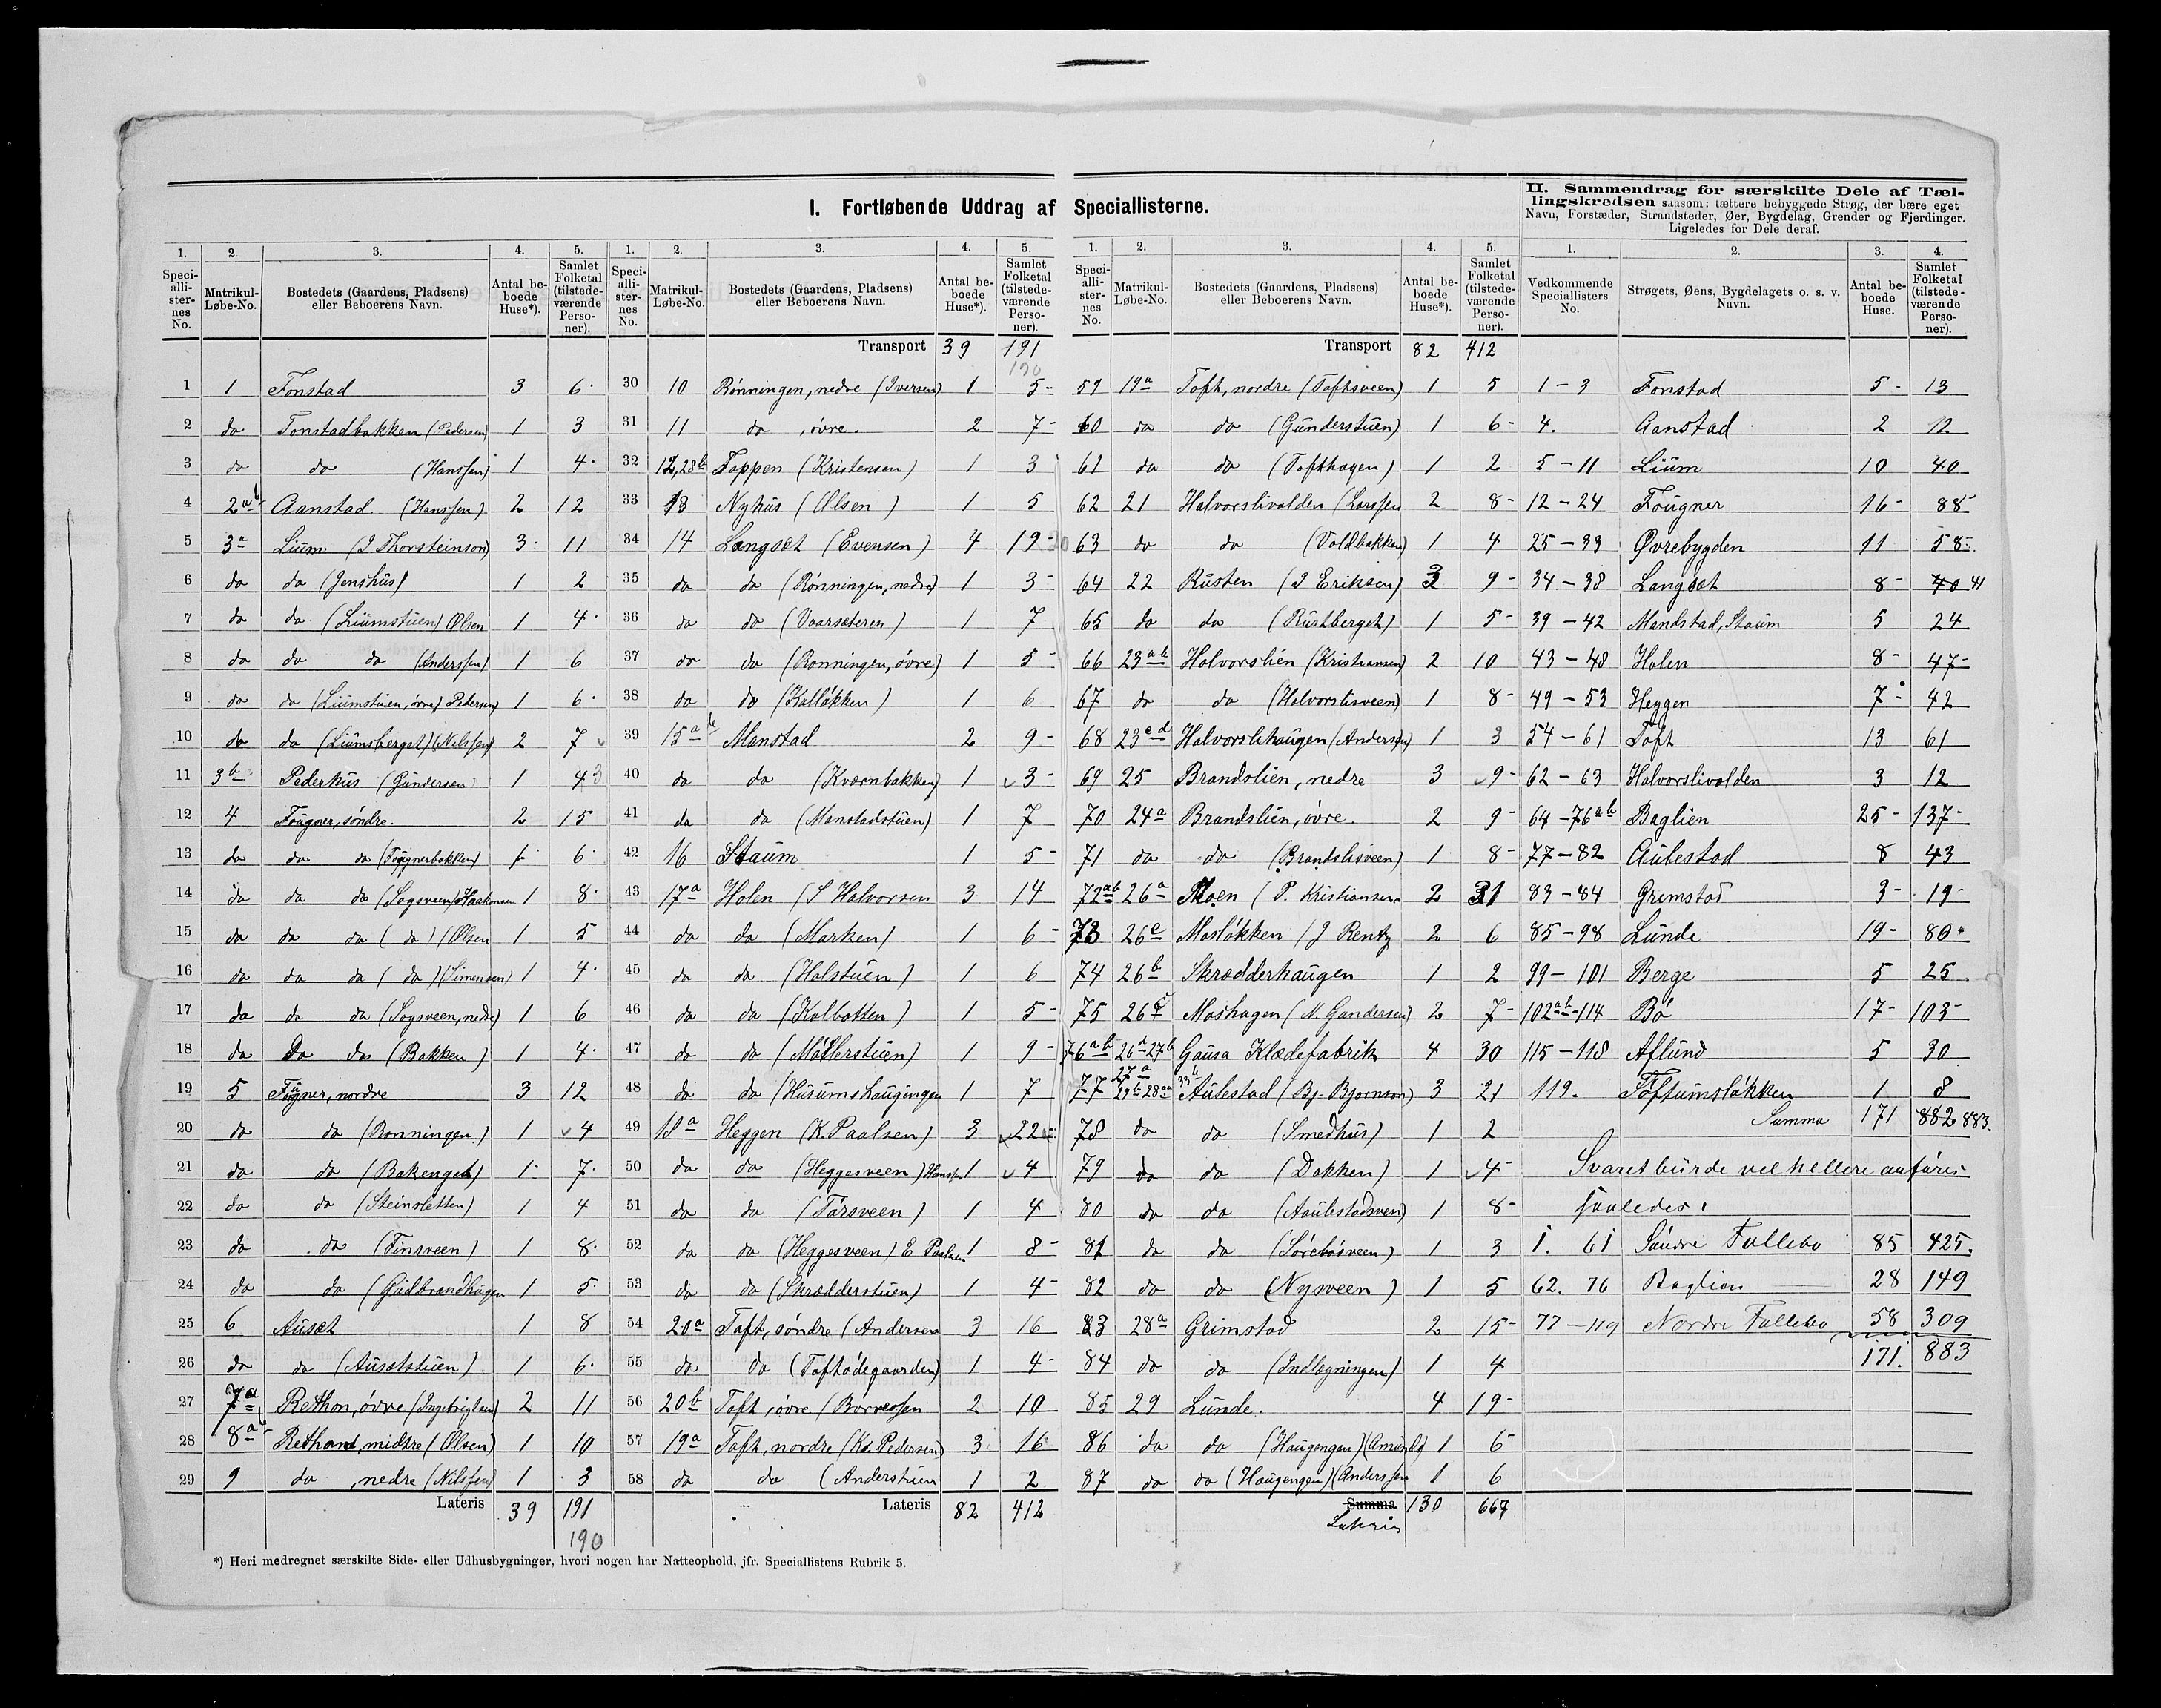 I. Fortløbende Uddrag af Speciallisterne.
1. 2. 3. 4. 5.
Speciallisternes No. Matrikul-Løbe-No. Bostedets (Gaardens, Pladsens) eller Beboerens Navn. Antal beboede Huse*). Samlet Folketal (tilstedeværende Personer).
1 1 Fonstad 3 6
2 do Fonstadbakken (Pedersen) 1 3
3 do do (Hansen) 1 4
4 2ab Aanstad (Hansen) 2 12
5 3a Lium (J Thorsteinson) 3 11
6 do do (Jenshus) 1 2
7 do do (Liumstuen) Olsen 1 4
8 do do do (Anderssen) 1 6
9 do do (Liumstuen, øvre) Pedersen 1 6
10 do do (Liumsberget) (Nilssen) 2 7
11 3b Pederhus (Gundersen 1 4 3
12 4 Fougner, søndre 2 15
13 do do do (Fougnerbakken) 1 6
14 do do do (Sogsveen) Haakonsen 1 8
15 do do do (do) (Olsen 1 5
16 do do do (do) (Simensen) 1 4
17 do do do (Sogsveen, nedre) 1 6
18 do do do (Bakken) 1 4
19 5 Fougner, nordre 3 12
20 do do (Ronningen) 1 4
21 do do (Bakenget) 1 7
22 do do (Steinsletten) 1 4
23 do do (Finsveen) 1 8
24 do do (Gudbrandhugen 1 5
25 6 Auset 1 8
26 do do (Ausetstuen) 1 6
27 7a Rethon, øvre (Ingebrigtsen) 2 11
28 8ab Rethon, midtre (Olsen) 1 10
29 9 do, nedre (Nilssen) 1 3
Lateris 39 191
190
1. 2. 3. 4. 5.
Speciallisternes No. Matrikul-Løbe-No. Bostedets (Gaardens, Pladsens) eller Beboerens Navn. Antal beboede Huse*). Samlet Folketal (tilstedeværende Personer).
Transport 39 191
190
30 10 Rønningen, nedre (Iversen) 1 5
31 11 do, øvre. 2 7
32 12,28b Toppen (Kristensen) 1 3
33 13 Nyhus (Olsen) 1 5
34 14 Langset (Evensen) 4 19
35 do do (Rønningen, nedre) 1 3
36 do do (Vaarsæteren) 1 7
37 do do (Ronningen, øvre) 1 5
38 do do (Kalløkken) 1 6
39 15ab Manstad 2 9
40 do do (Kværnbakken) 1 3
41 do do (Manstadstuen) 1 7
42 16 Staum 1 5
43 17a Holen (S Halvorsen 3 14
44 do do (Marken) 1 6
45 do do (Holstuen) 1 6
46 do do (Kolbotten) 1 5
47 do do (Møllerstuen) 1 9
48 do do (Husumshaugengen 1 7
49 18a Heggen (K. Paalsen) 3 22
50 do do (Heggesveen) Hanssen 1 4
51 do do (Tørsveen) 1 4
52 do do (Heggesveen) E Paalsen 1 8
53 do do (Skrædderstuen) 1 4
54 20a Toft, søndre (Andersen 3 16
55 do do (Toftødegaarden) 1 4
56 20b Toft, øvre (Børresen 2 10
57 19a Toft, nordre (Kr. Pedersen) 3 16
58 do do (Anderstuen 1 2
Lateris 82 412
1. 2. 3. 4. 5.
Speciallisternes No. Matrikul-Løbe-No. Bostedets (Gaardens, Pladsens) eller Beboerens Navn. Antal beboede Huse*). Samlet Folketal (tilstedeværende Personer).
Transport 82 412
59 19a Toft, nordre (Toftsveen) 1 5
60 do do (Gunderstuen) 1 6
61 do do (Tofthagen) 1 2
62 21 Halvorslivolden (Larssen 2 8
63 do do (Voldbakken) 1 4
64 22 Rusten (J Eriksen) 3 9
65 do do (Rustberget) 1 5
66 23ab Halvorslien (Kristiansen) 2 10
67 do do (Halvorslisveen) 1 8
68 23ad Halvorslihaugen (Andersen) 1 3
69 25 Brandslien, nedre 3 9
70 24a Brandslien, øvre. 2 9
71 do do (Brandslisveen) 1 8
72ab 26a Moen (P. Kristiansen 2 31
73 26e Mosløkken (J Rentz 2 6
74 26b Skrædderhaugen 1 2
75 26c Moshagen (N. Gundersen) 2 7
76ab 26d 27b Gausa Klædefabrik 4 30
77 27a 29b 28aa 33b Aulestad (Bj. Bjørnson) 3 21
78 do do (Smedhus) 1 2
79 do do (Dokken) 1 4
80 do do (Aulestadsveen) 1 8
81 do do (Sørebøsveen) 1 3
82 do do (Nysveen) 1 5
83 28a Grimstad 2 15
84 do do (Indlægningen) 1 4
85 29 Lunde. 4 19
86 do do (Haugengen) (Amunds) 1 6
87 do do (Haugengen) (Anderssen 1 6
Summa 130 667
Lateris
II. Sammendrag for særskilte Dele af Tællingskredsen saasom: tættere bebyggede Strøg, der bære eget Navn, Forstæder, Strandsteder, Øer, Bygdelag, Grender og Fjerdinger. Ligeledes for Dele deraf.
1. 2. 3. 4.
Vedkommende Speciallisters No. Strøgets, Øens, Bygdelagets o. s. v. Navn. Antal beboede Huse. Samlet Folketal (tilstedeværende Personer).
1 - 3 Fonstad 5 13
4. Aanstad 2 12
5 - 11 Lium 10 40
12 - 24 Fougner 16 88
25 - 33 Øvrebygden 11 58
34 - 38 Langset 8 40 41
39 - 42 Mandstad, Staum 5 24
43 - 48 Holen 8 47
49 - 53 Heggen 7 42
54 - 61 Toft 13 61
62 - 63 Halvorslivolden 3 12
64 - 76ab Baglien 25 137
77 - 82 Aulestad 8 43
83 - 84 Gremstad 3 19
85 - 98 Lunde 19 80
99 - 101 Berge 5 25
102ab - 114 Bø 17 103
115 - 118 Aflund 5 30
119. Toftumsløkken 1 8
Summa 171 882 883.
Svaret burde vel hellere anføres
saaledes:
1. 61 Søndre Følleboe 85 425.
62. 76 Baglien 28 149
77 - 119 Nordre Følleboe 58 309
171. 883
*) Heri medregnet særskilte Side- eller Udhusbygninger, hvori nogen har Natteophold, jfr. Speciallistens Rubrik 5.